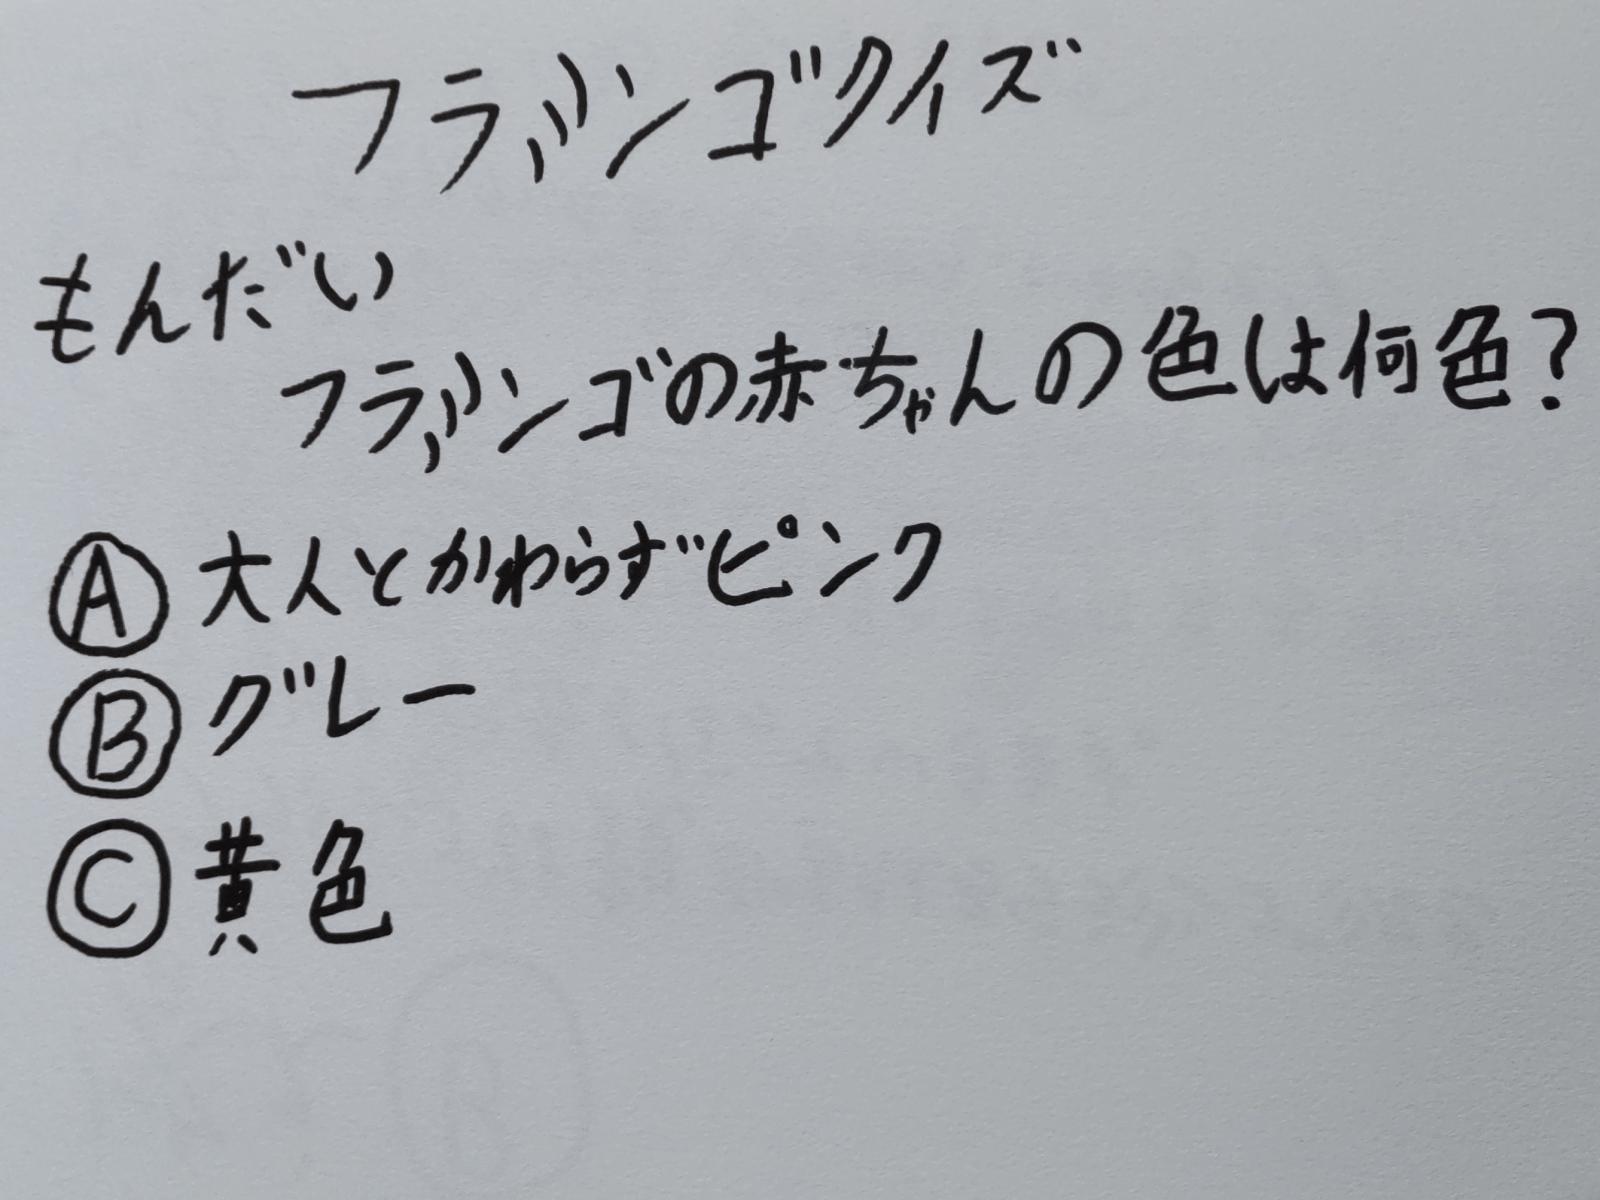 フラミンゴクイズ
もんだい
フラミンゴの赤ちゃんの色は何色?
Ⓐ 大人とかわらずピンク
Ⓑ グレー
Ⓒ 黄色